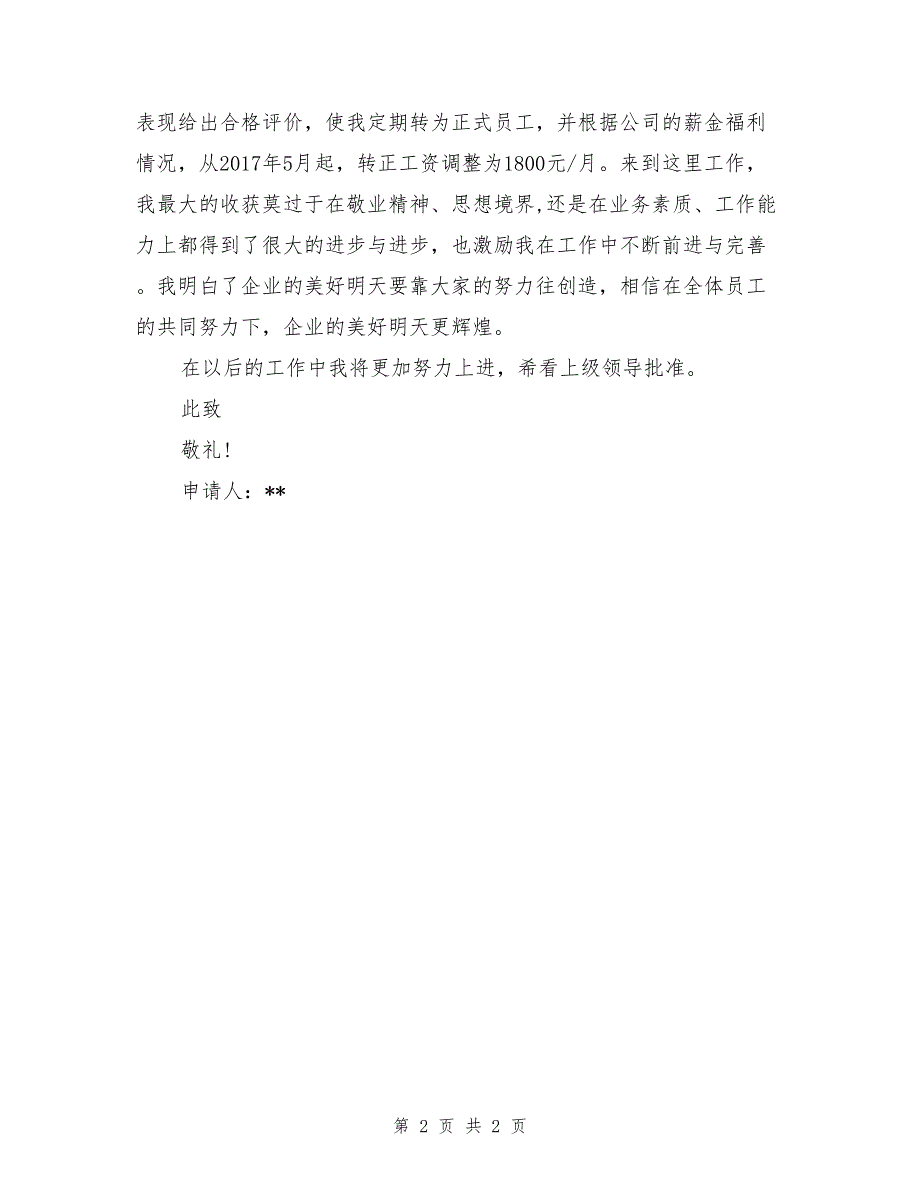 表现给出合格评价，使我定期转为正式员工，并根据公司的薪金福利
情况，从2017年5月起，转正工资调整为1800元/月。来到这里工作，
我最大的收获莫过于在敬业精神、思想境界,还是在业务素质、工作能
力上都得到了很大的进步与进步，也激励我在工作中不断前进与完善
。我明白了企业的美好明天要靠大家的努力往创造，相信在全体员工
的共同努力下，企业的美好明天更辉煌。
在以后的工作中我将更加努力上进，希看上级领导批准。
此致
敬礼!
申请人：**
第 2 页 共 2 页